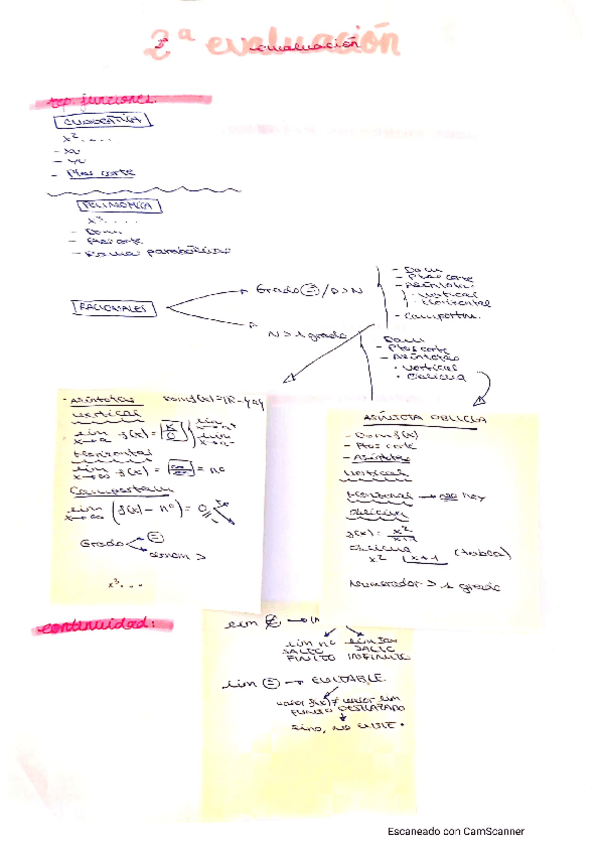 2ª evaluación
evaluación
rep. funciones:
CUADRÁTICA
x² ....
- Xv
- Yv
- Ptos corte
POLINÓMICA
x³ ....
- Dom
- Ptos corte
- Forma parabólica
RACIONALES
Grado = / D>N
- Dom
- Ptos corte
- Asíntota
· vertical
· Horizontal
- comportam.
N > 1 grado
- Dom
- Ptos corte
- Asíntotas
· vertical
· Oblicua
· Asíntotas Dom f(x) = R - {a}
vertical
lim x→a f(x) = K/0
Horizontal
lim x→∞ f(x) = ∞/∞ = nº
Comportam
lim x→∞ (f(x) - nº) = 0
Grado =
denom >
x³...
ASÍNTOTA OBLICUA
- Dom f(x)
- Ptos corte
- Asíntotas
Vertical
Horizontal → no hay
oblicua
f(x) = x²/x+1
oblicua
x² |x+1 (tabla)
Numerador > 1 grado
continuidad:
lim
lim nº lim
SALTO SALTO
FINITO INFINITO
lim = → EVITABLE
valor f(x) ≠ valor lim
PUNTO DESPLAZADO
sino, NO EXISTE.
Escaneado con CamScanner